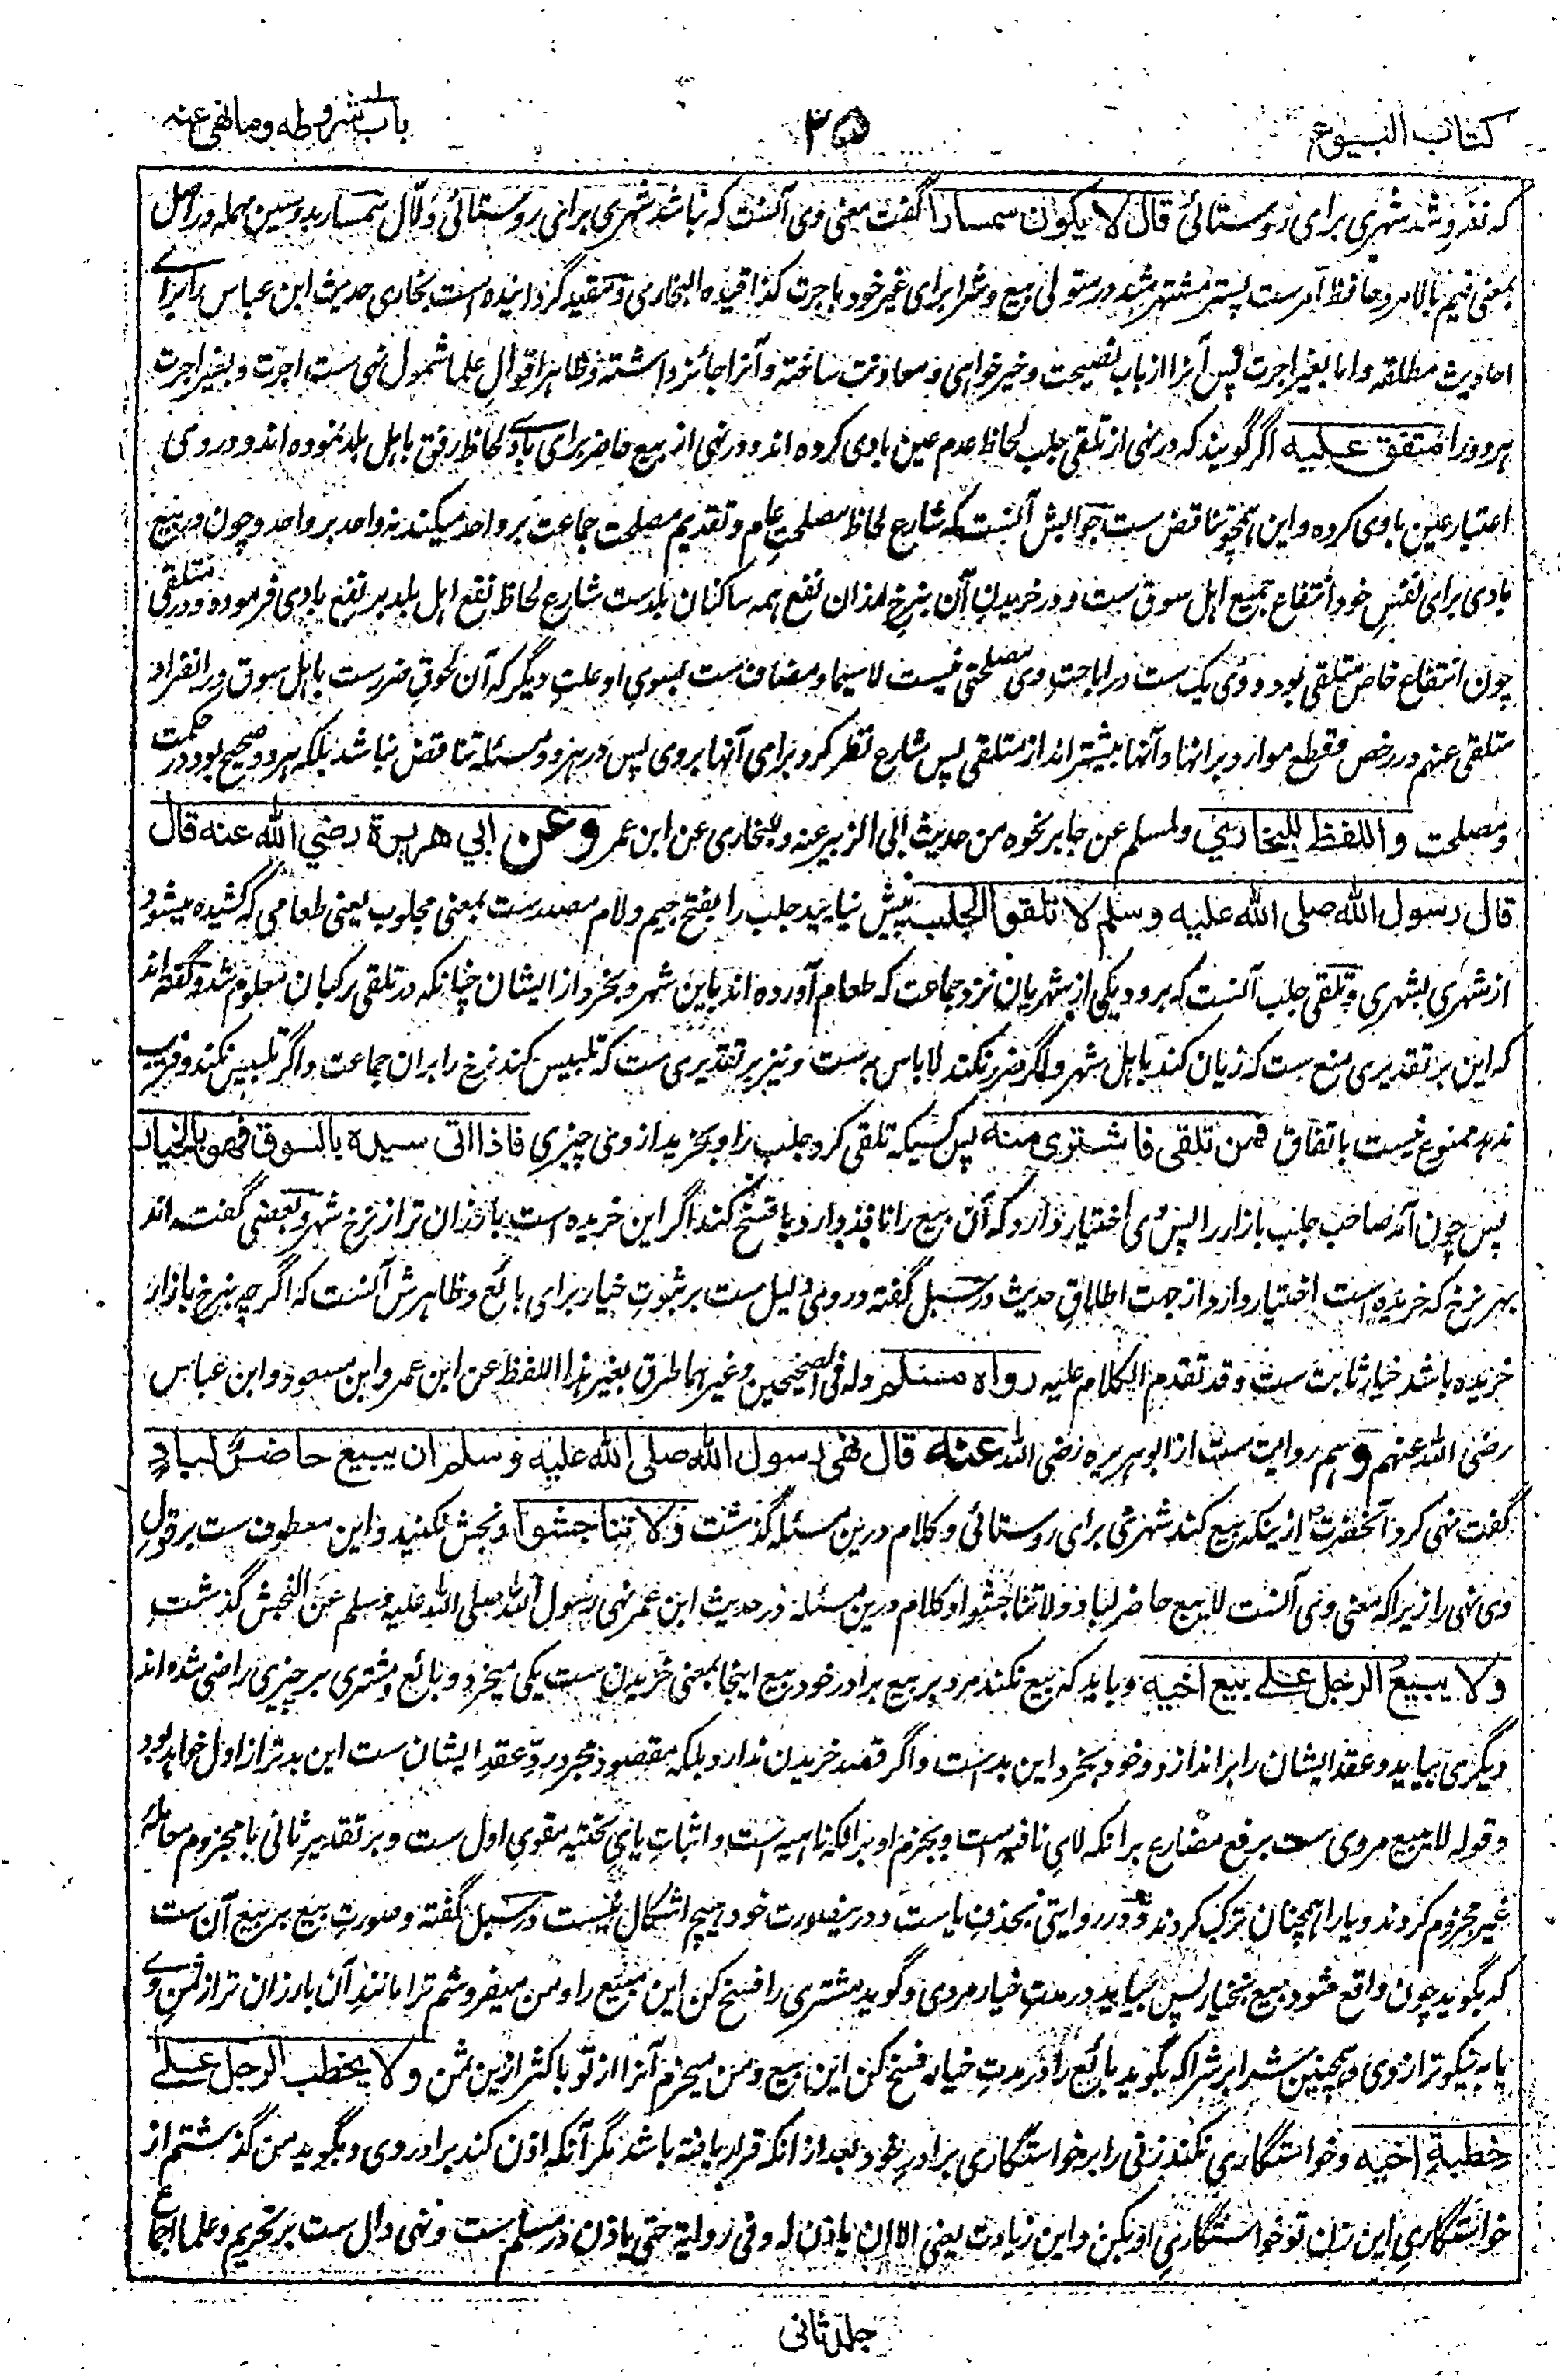 کتاب البیوع
۳۵
باب شروطه وما نهی عنه
که نفروشد شهری برای روستائی قال لا یکون سمسارا گفت معنی وی آنست که نباشد شهری برای روستائی دلّال سمسار بدو سین مهمله در اصل
بمعنی قیم بالامر و حافظ آمرست پستر مشتهر شد در متولی بیع و شرا برای غیر خود باجرت کذا قیده البخاری و مقید گردانیده است بخاری حدیث ابن عباس را برای
احادیث مطلقه واما بغیر اجرت پس آنرا از باب نصیحت و خیرخواهی و معاونت ساخته و آنرا جائز داشته و ظاهر اقوال علما شمول نهی ست اجرت و بغیر اجرت
هردو را متفق علیه اگر گویند که در نهی از تلقی جلب لحاظ عدم عین بادی کرده اند و در نهی از بیع حاضر برای بادی لحاظ رفق باهل بلد نموده اند و در وی
اعتبار عین بادی کرده و این همچو تناقض ست جوابش آنست که شارع لحاظ مصلحت عام و تقدیم مصلحت جماعت بر واحد میکند نه واحد بر واحد و چون در بیع
بادی برای نفس خود انتفاع جمیع اهل سوق ست و در خریدن آن بنرخ ارزان نفع همه ساکنان بلدست شارع لحاظ نفع اهل بلد بر نفع بادی فرموده و در تلقی
چون انتفاع خاص متلقی بود و وی یک ست در اباحت وی مصلحتی نیست لاسیما و مضاف ست بسوی او علت دیگر که آن لحوق ضررست باهل سوق در انفراد
متلقی عنهم در رخص و قطع موارد برانها و آنها بیشتر اند از متلقی پس شارع نظر کرد برای آنها بر وی پس در هر دو مسئله تناقض نباشد بلکه هر دو صحیح بود در حکمت
و مصلحت واللفظ للبخاری ولمسلم عن جابر نحوه من حدیث ابی الزبیر عنه و للبخاری عن ابن عمر وعن ابی هریرة رضی الله عنه قال
قال رسول الله صلی الله علیه وسلم لا تلقوا الجلب پیش نیایید جلب را بفتح جیم و لام مصدرست بمعنی مجلوب یعنی طعامی که کشیده میشود
از شهری بشهری و تلقی جلب آنست که برود یکی از شهریان نزد جماعت که طعام آورده اند باین شهر و بخرد از ایشان چنانکه در تلقی رکبان معلوم شد و گفته اند
که این بر تقدیری منع ست که زیان کند باهل شهر و اگر ضرر نکند لاباس به ست و نیز بر تقدیری ست که تلبیس کند نرخ را بران جماعت و اگر تلبیس نکند و فریب
ندهد ممنوع نیست باتفاق فمن تلقی فاشتری منه پس کسیکه تلقی کرد جلب را و بخرید از وی چیزی فاذا اتی سیده بالسوق فهو بالخیار
پس چون آمد صاحب جلب بازار را پس وی اختیار دارد که آن بیع را نافذ دارد یا فسخ کند اگر این خریده است بارزان تر از نرخ شهر و بعضی گفته اند
بهر نرخ که خریده است اختیار دارد از جهت اطلاق حدیث در سبل گفته در وی دلیل ست بر ثبوت خیار برای بائع و ظاهرش آنست که اگر چه بنرخ بازار
خریده باشد خیار ثابت ست وقد تقدم الکلام علیه رواه مسلم وله فی الصحیحین وغیرهما طرق بغیر هذا اللفظ عن ابن عمر وابن مسعود وابن عباس
رضی الله عنهم و هم روایت ست از ابو هریره رضی الله عنه قال نهی رسول الله صلی الله علیه وسلم ان یبیع حاضر لباد
گفت نهی کرد آنحضرت از ینکه بیع کند شهری برای روستائی و کلام درین مسئله گذشت ولا تناجشوا و نجش نکنید و این معطوف ست بر قول
وی نهی را زیرا که معنی وی آنست لا یبیع حاضر لباد ولا تناجشوا و کلام درین مسئله در حدیث ابن عمر نهی رسول الله صلی الله علیه وسلم عن النجش گذشت
ولا یبیع الرجل علی بیع اخیه و باید که بیع نکند مرد بر بیع برادر خود بیع اینجا بمعنی خریدن ست یکی میخرد و بائع و مشتری بر چیزی راضی شده اند
دیگری بیاید و عقد ایشان را براندازد و خود بخرد این بدست و اگر قصد خریدن ندارد بلکه مقصود مجرد ردّ عقد ایشان ست این بدتر از اول خواهد بود
و قوله لا یبیع مروی ست برفع مضارع برانکه لای نافیه است و بجزم او برانکه ناهیه است و اثبات یای تحتیه مقوی اول ست و بر تقدیر ثانی با مجزوم معامله
غیر مجزوم کردند و یا را همچنان ترک کردند و در روایتی بحذف یاست و درینصورت خود هیچ اشکال نیست در سبل گفته و صورت بیع بر بیع آن ست
که بگوید چون واقع شود بیع بخیار پس بیاید در مدت خیار مردی و گوید مشتری را فسخ کن این بیع را و من میفروشم ترا مانند آن بارزان تر از ثمن وی
یا به نیکوتر از وی و همچنین شرا بر شرا که بگوید بائع را در مدت خیار فسخ کن این بیع و من میخرم آنرا از تو باکثر ازین ثمن ولا یخطب الرجل علی
خطبة اخیه و خواستگاری نکند زنی را بر خواستگاری برادر خود بعد از انکه قرار یافته باشد مگر آنکه اذن کند برادر وی و بگوید من گذشتم از
خواستگاری این زن تو خواستگاری او بکن و این زیادت یعنی الا ان یاذن له وفی روایة حتی یاذن در مسلم ست و نهی دال ست بر تحریم و علما اجماع
جلد ثانی